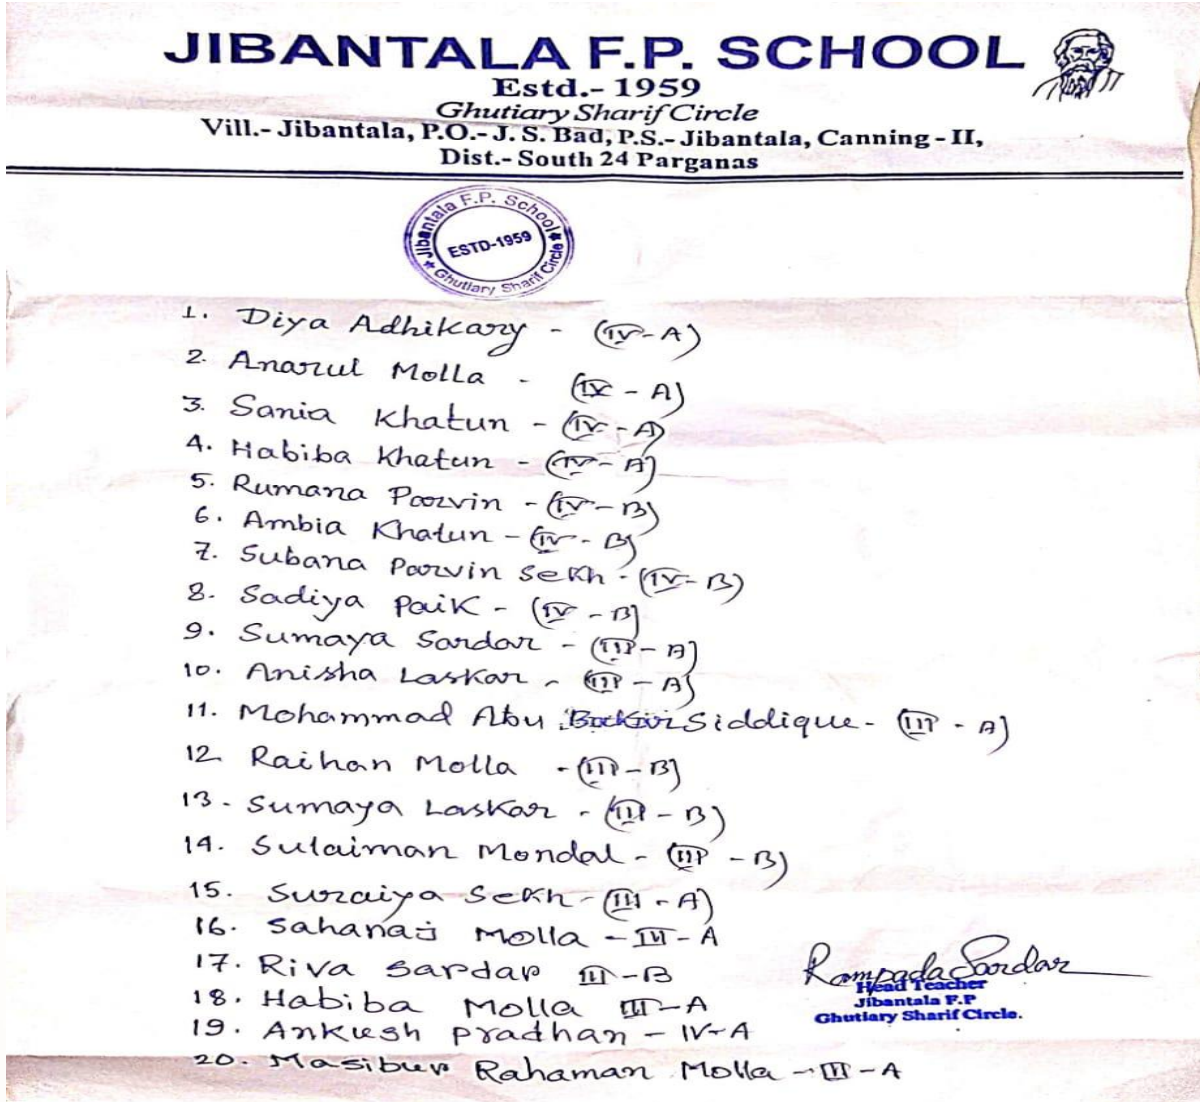 JIBANTALA F.P. SCHOOL
Estd.- 1959
Ghutiary Sharif Circle
Vill.- Jibantala, P.O.- J. S. Bad, P.S.- Jibantala, Canning - II,
Dist.- South 24 Parganas
Jibantala F.P. School
ESTD-1959
★ Ghutiary Sharif Circle ★
1. Diya Adhikary - (IV-A)
2. Anarul Molla - (IV - A)
3. Sania Khatun - (IV - A)
4. Habiba Khatun - (IV - A)
5. Rumana Parvin - (IV - B)
6. Ambia Khatun - (IV - B)
7. Subana Parvin Sekh - (IV- B)
8. Sadiya Paik - (IV - B)
9. Sumaya Sardar - (III - A)
10. Anisha Laskar - (III - A)
11. Mohammad Abu Siddique - (III - A)
12. Raihan Molla - (III - B)
13. Sumaya Laskar - (III - B)
14. Sulaiman Mondal - (III - B)
15. Suraiya Sekh - (III - A)
16. Sahanaj Molla - III - A
17. Riva Sardar III - B
18. Habiba Molla III - A
19. Ankush Pradhan - IV - A
20. Masibur Rahaman Molla - III - A
Rampada Sardar
Head Teacher
Jibantala F.P
Ghutiary Sharif Circle.